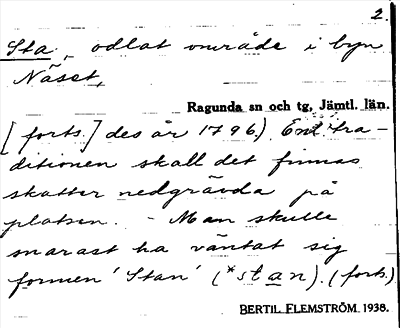 2.
Sta, odlat område i byn
Näset,
Ragunda sn och tg, Jämtl. län.
[forts.] des år 1796.) Enl. tra-
ditionen skall det finnas
skatter nedgrävda på
platsen. - Man skulle
snarast ha väntat sig
formen 'Stan' (*stan). (forts.)
BERTIL FLEMSTRÖM 1938.